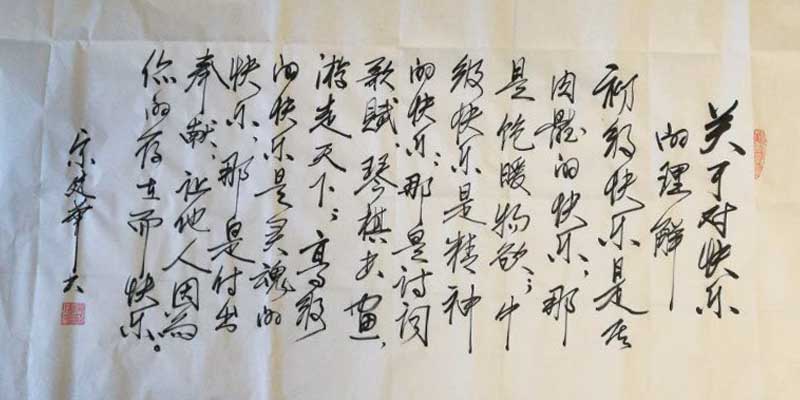 关于对快乐
的理解
初级快乐是
肉體的快乐，那
是饱暖物欲；中
级快乐是精神
的快乐，那是诗词
歌赋，琴棋书画，
游走天下；高级
的快乐是灵魂的
快乐，那是付出
奉献，让他人因为
你的存在而快乐。
建華